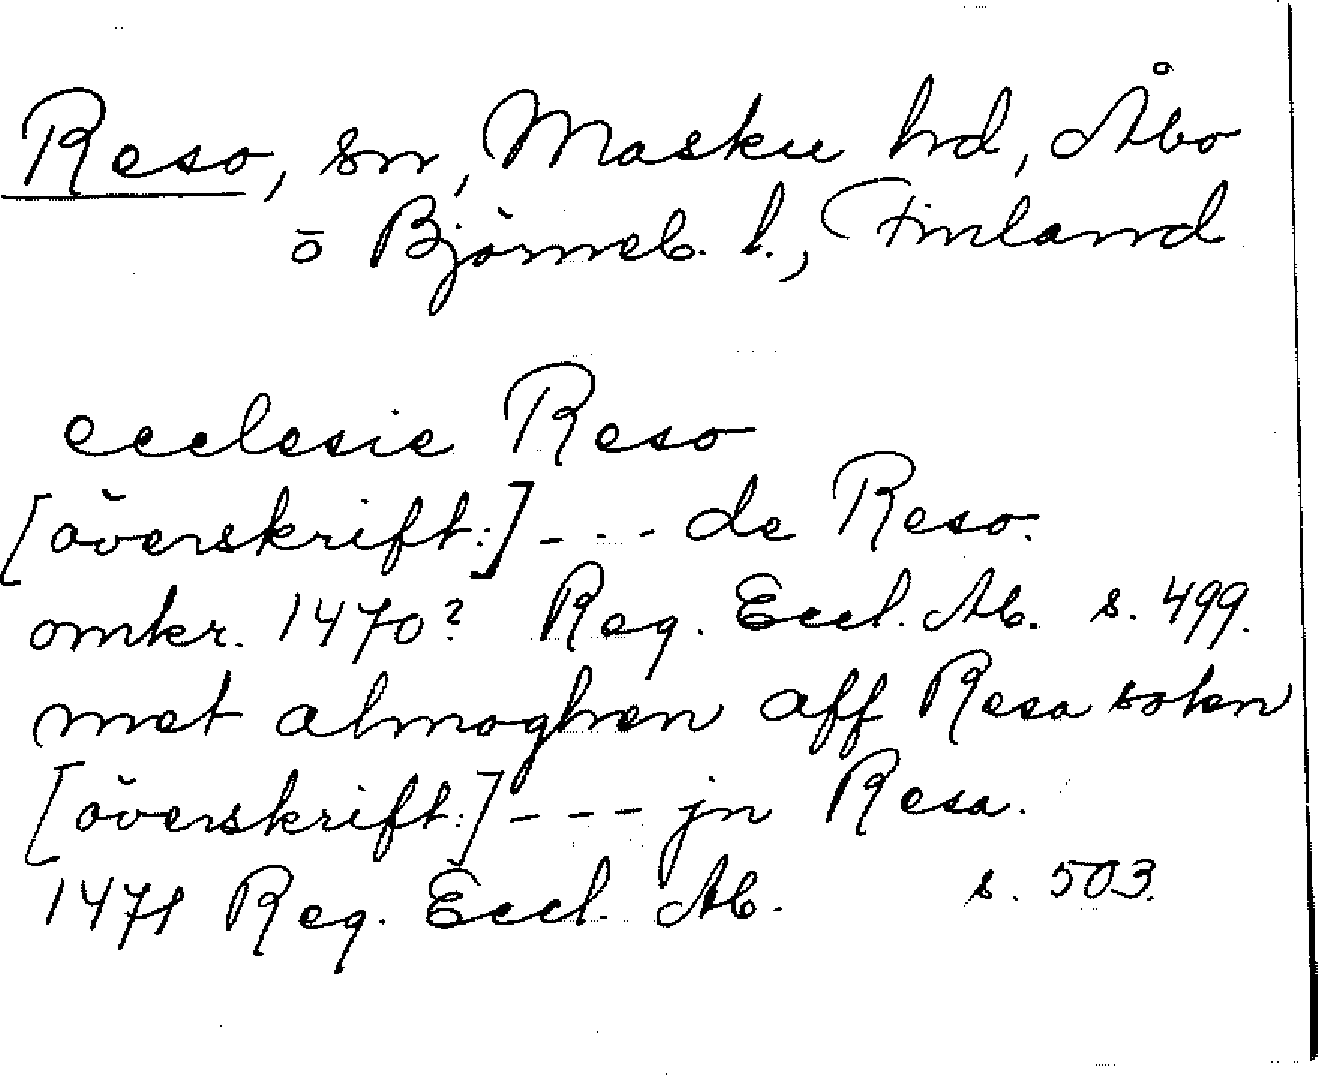 Reso, sn, Masku hd, Åbo
o Björneb. l., Finland
ecclesie Reso
[överskrift:] - - - de Reso.
omkr. 1470? Reg. Eccl. Ab. s. 499.
met almoghen aff Resa sokn
[överskrift:] - - - jn Resa.
1471 Reg. Eccl. Ab. s. 503.